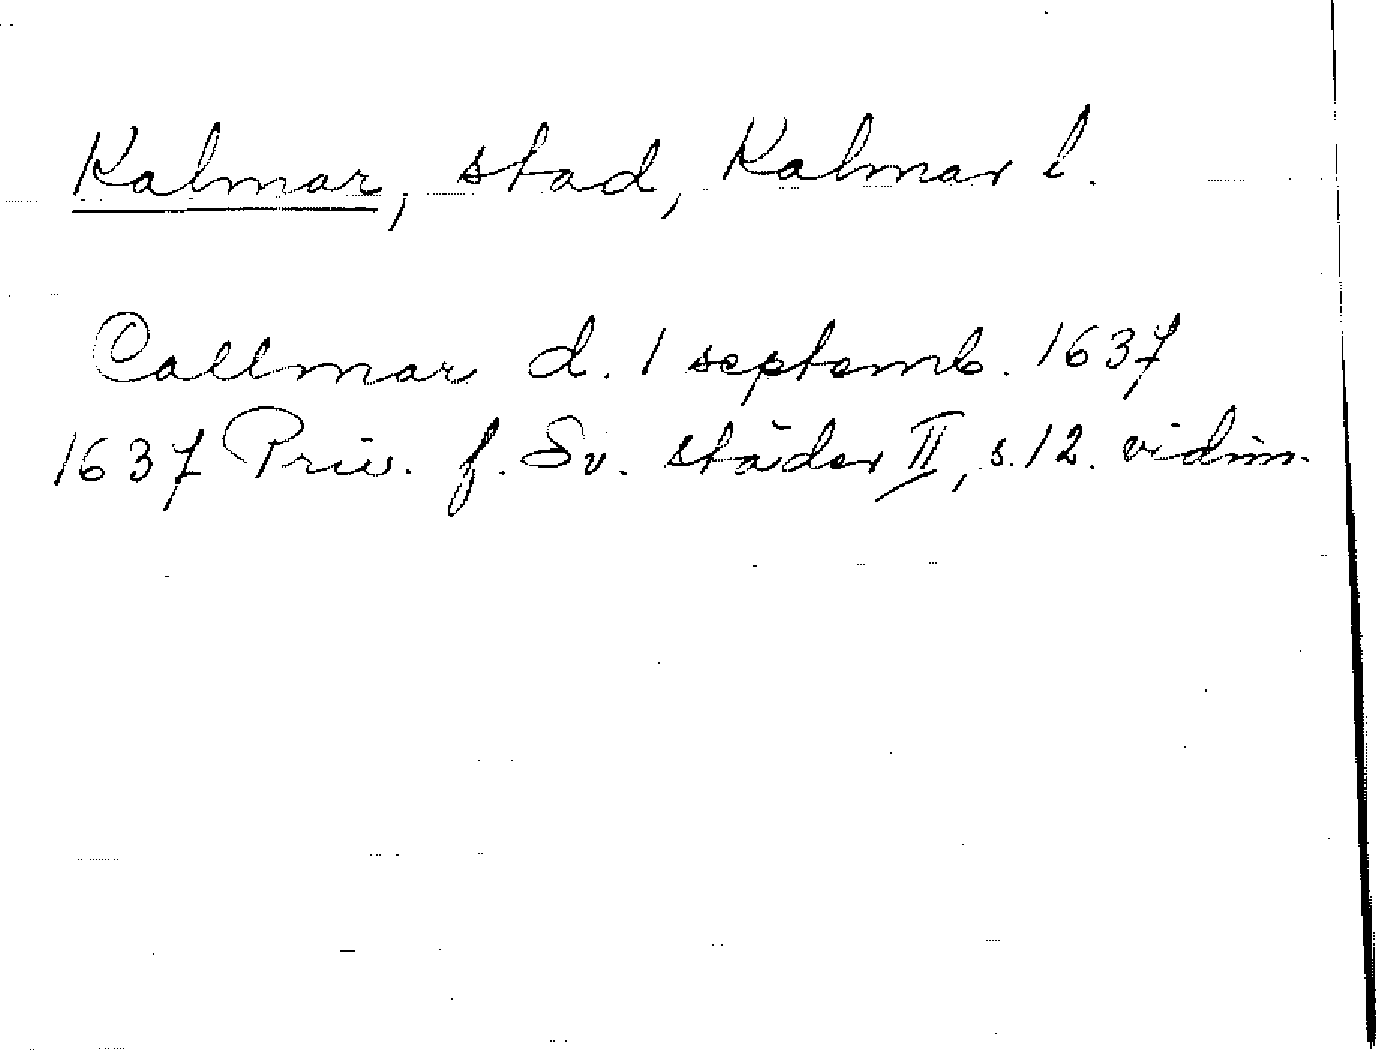 Kalmar, stad, Kalmar l.
Callmar d. 1 septemb. 1637
1637 Priv. f. Sv. städer II, s. 12. vidim.